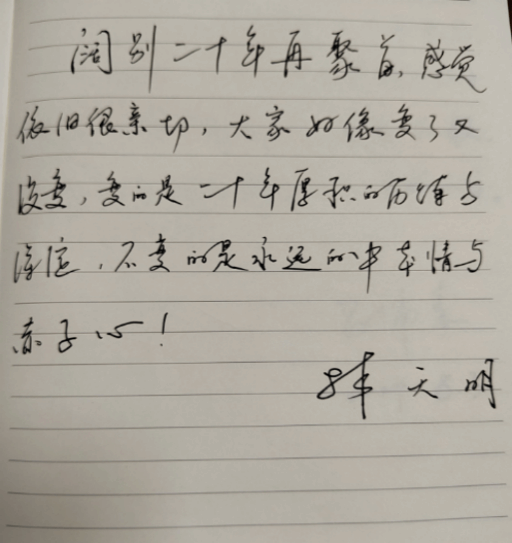 阔别二十年再聚首,感觉
依旧很亲切,大家好像变了又
没变,变的是二十年厚积的历练与
淡定,不变的是永远的中本情与
赤子心!
天明